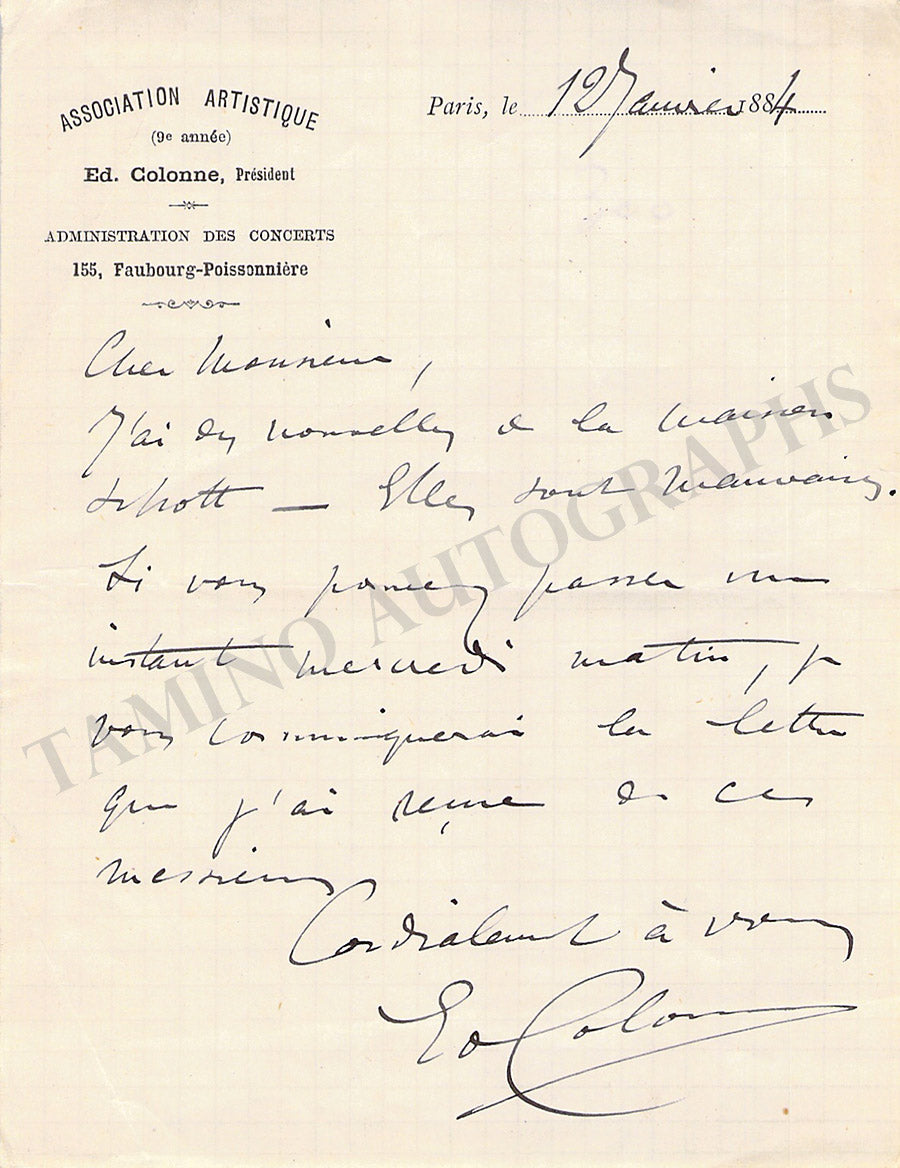 ASSOCIATION ARTISTIQUE
(9e année)
Ed. Colonne, Président
ADMINISTRATION DES CONCERTS
155, Faubourg-Poissonnière
Paris, le 12 Janvier 1884
Cher Monsieur,
J'ai des nouvelles de la maison
Schott — Elles sont mauvaises.
Si vous pouvez passer un
instant mercredi matin, je
vous communiquerai la lettre
que j'ai reçue de ces
messieurs
Cordialement à vous
Ed Colonne
TAMINO AUTOGRAPHS